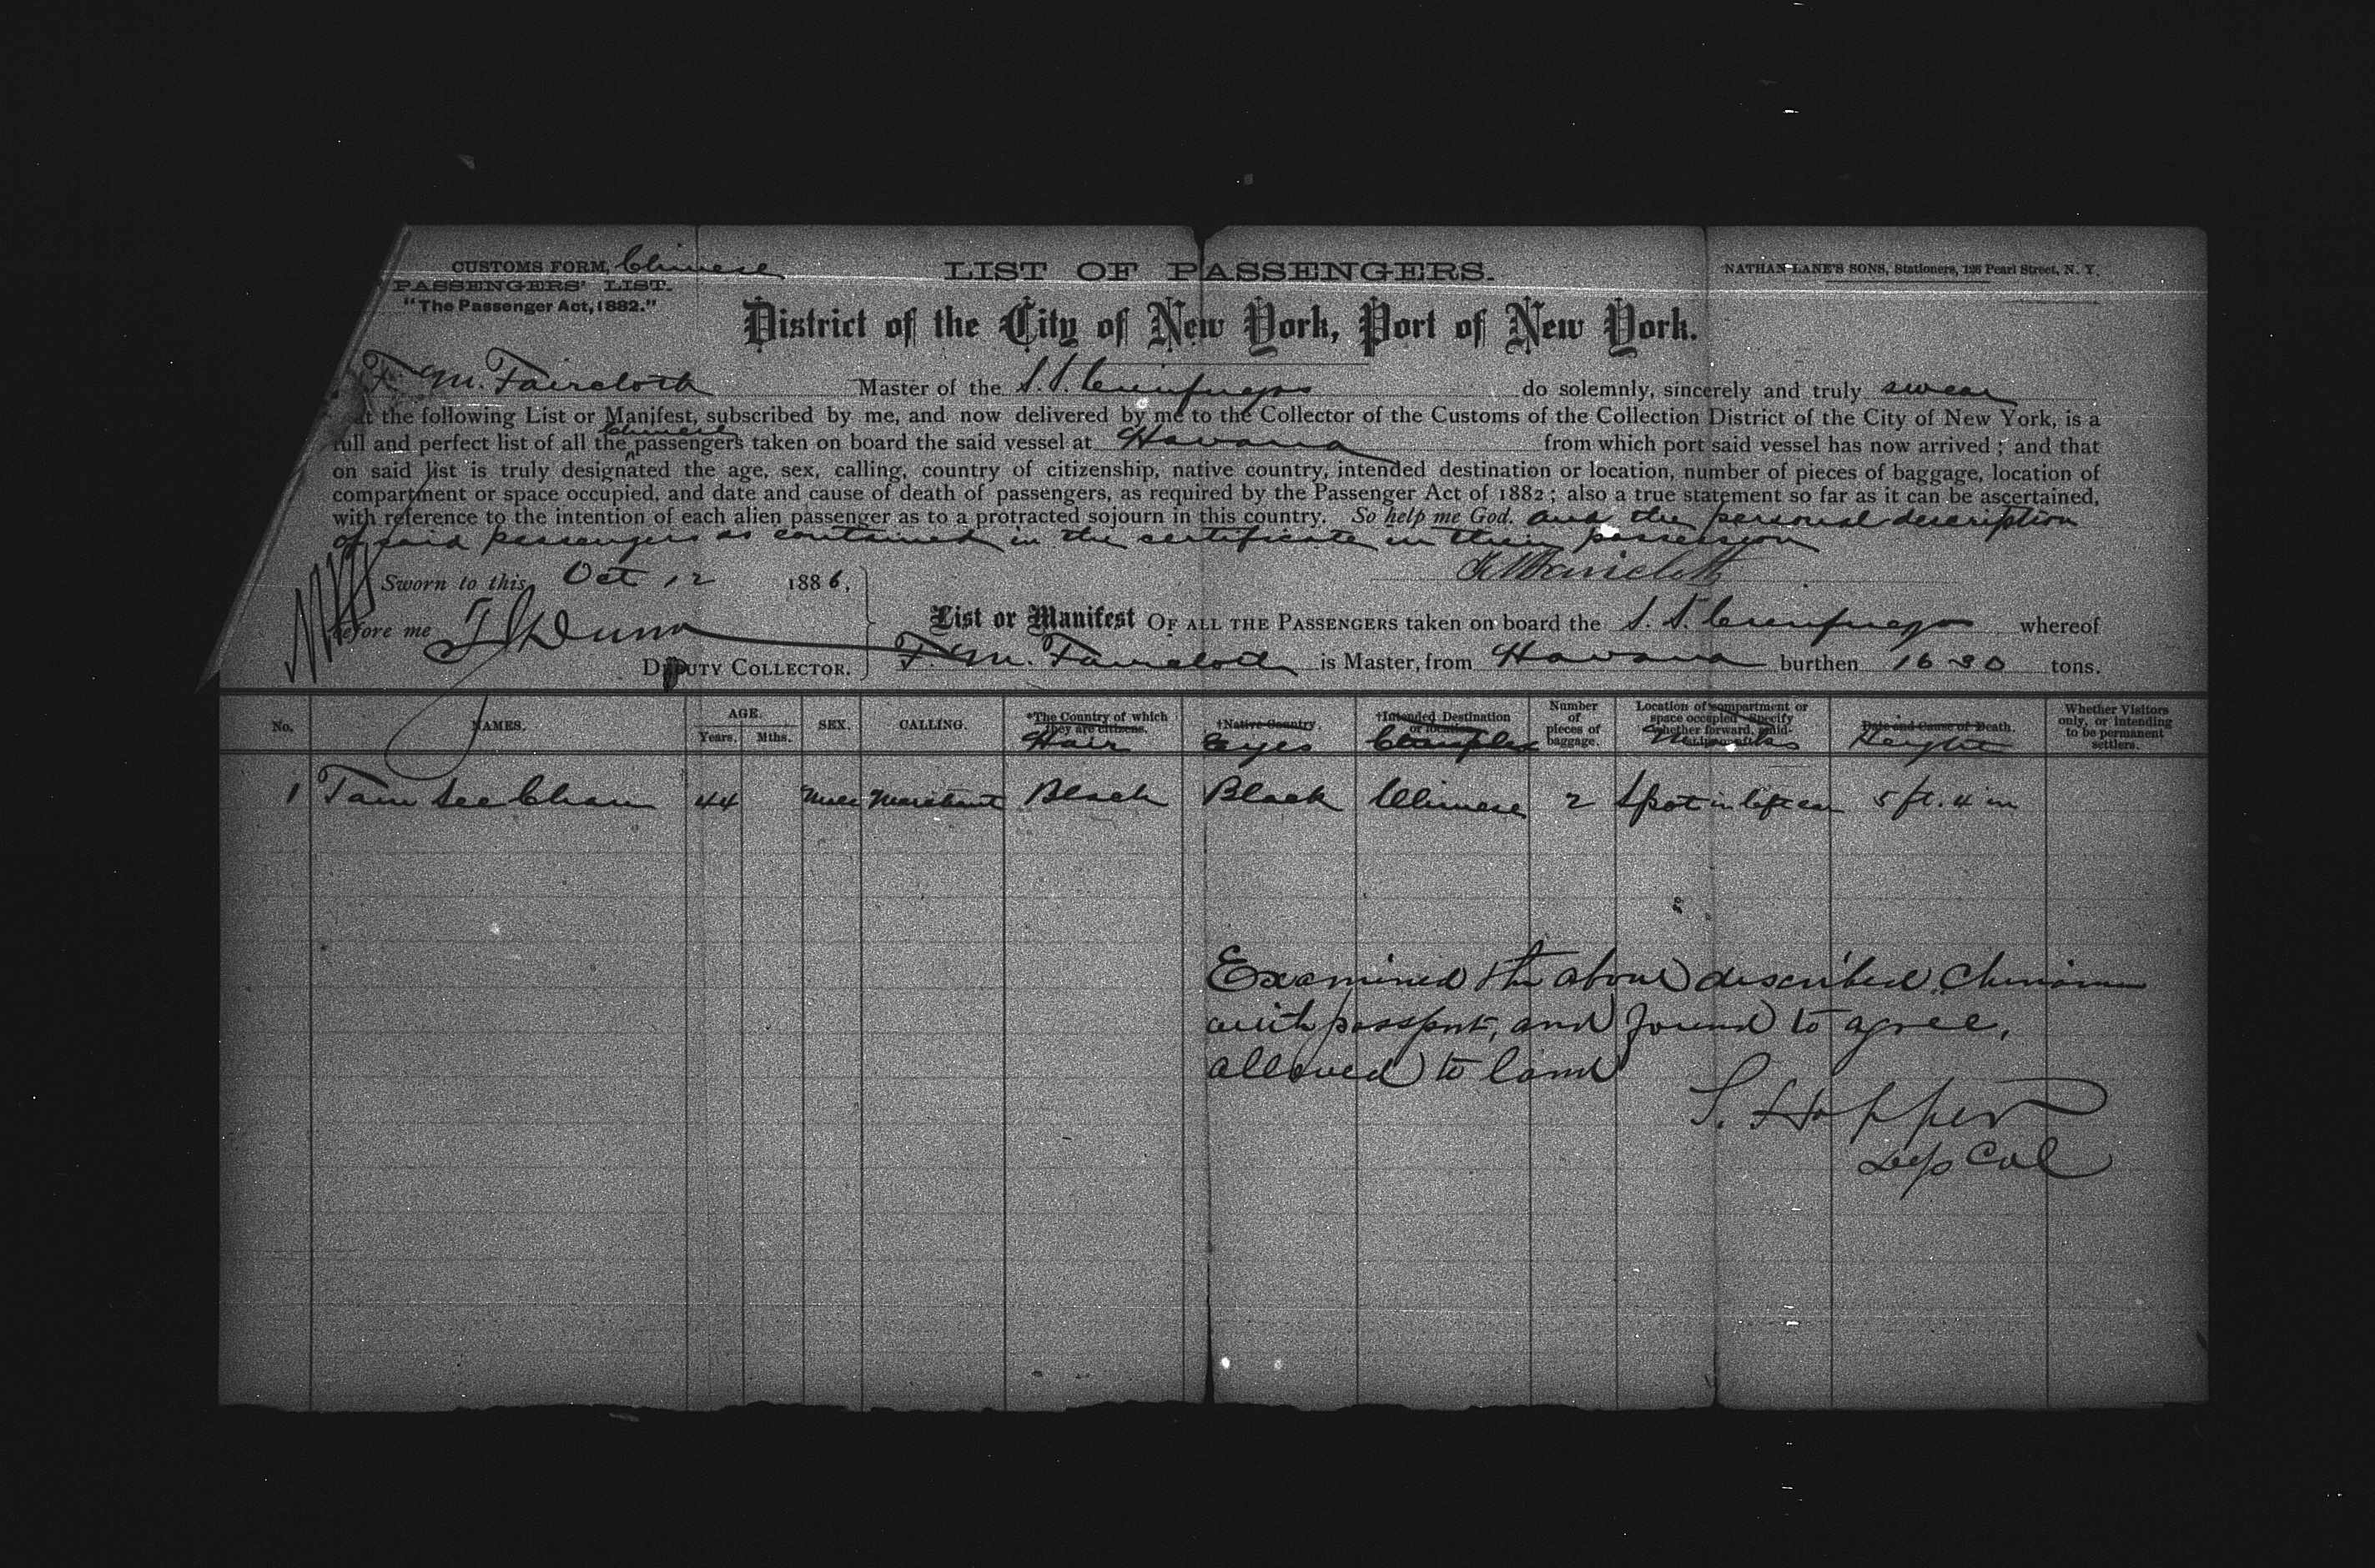 CUSTOMS FORM, Chinese
PASSENGERS' LIST.
"The Passenger Act, 1882."
LIST OF PASSENGERS.
NATHAN LANE'S SONS, Stationers, 136 Pearl Street, N. Y.
District of the City of New York, Port of New York.
F. M. Faircloth Master of the S. S. Cienfuegos do solemnly, sincerely and truly swear
the following List or Manifest, subscribed by me, and now delivered by me to the Collector of the Customs of the Collection District of the City of New York, is a
full and perfect list of all the Chinese passengers taken on board the said vessel at Havana from which port said vessel has now arrived; and that
on said list is truly designated the age, sex, calling, country of citizenship, native country, intended destination or location, number of pieces of baggage, location of
compartment or space occupied, and date and cause of death of passengers, as required by the Passenger Act of 1882; also a true statement so far as it can be ascertained,
with reference to the intention of each alien passenger as to a protracted sojourn in this country. So help me God. and the personal description
of said passengers as contained in the certificate in their possession
Sworn to this Oct 12 1886,
F M Faircloth
before me Dunn
DEPUTY COLLECTOR.
List or Manifest OF ALL THE PASSENGERS taken on board the S. S. Cienfuegos whereof
F. M. Faircloth is Master, from Havana burthen 1630 tons.
No. NAMES. AGE. Years. Mths. SEX. CALLING. *The Country of which they are citizens. Hair †Native Country. Eyes †Intended Destination or location. Complex Number of pieces of baggage. Location of compartment or space occupied Specify whether forward, Marks Date and Cause of Death. Height Whether Visitors only, or intending to be permanent settlers.
1 Tam See Chan 44 Male Merchant Black Black Chinese 2 Spot in left ear 5 ft. 4 in
Examined the above described Chinaman
with passport, and found to agree,
allowed to land
S. Hopper
Dep Col